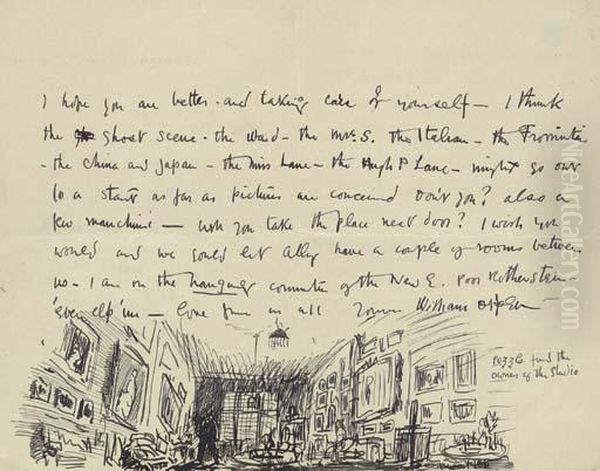 I hope you are better - and taking care of yourself — I think
the ghost scene - the Ward - the Mrs. S. The Italian - the
- the China and Japan - the Miss Lane - the Hugh P Lane - might go over
to a start as far as pictures are concerned Don't you? also a
few — will you take the place next door? I wish you
would and we could let Ally have a couple of rooms between
us - I am on the hanging committee of the New E. poor Rothenstein -
'even elp 'im — love from us all William Orpen
find the
owner of the Studio
NiceArtGallery.com